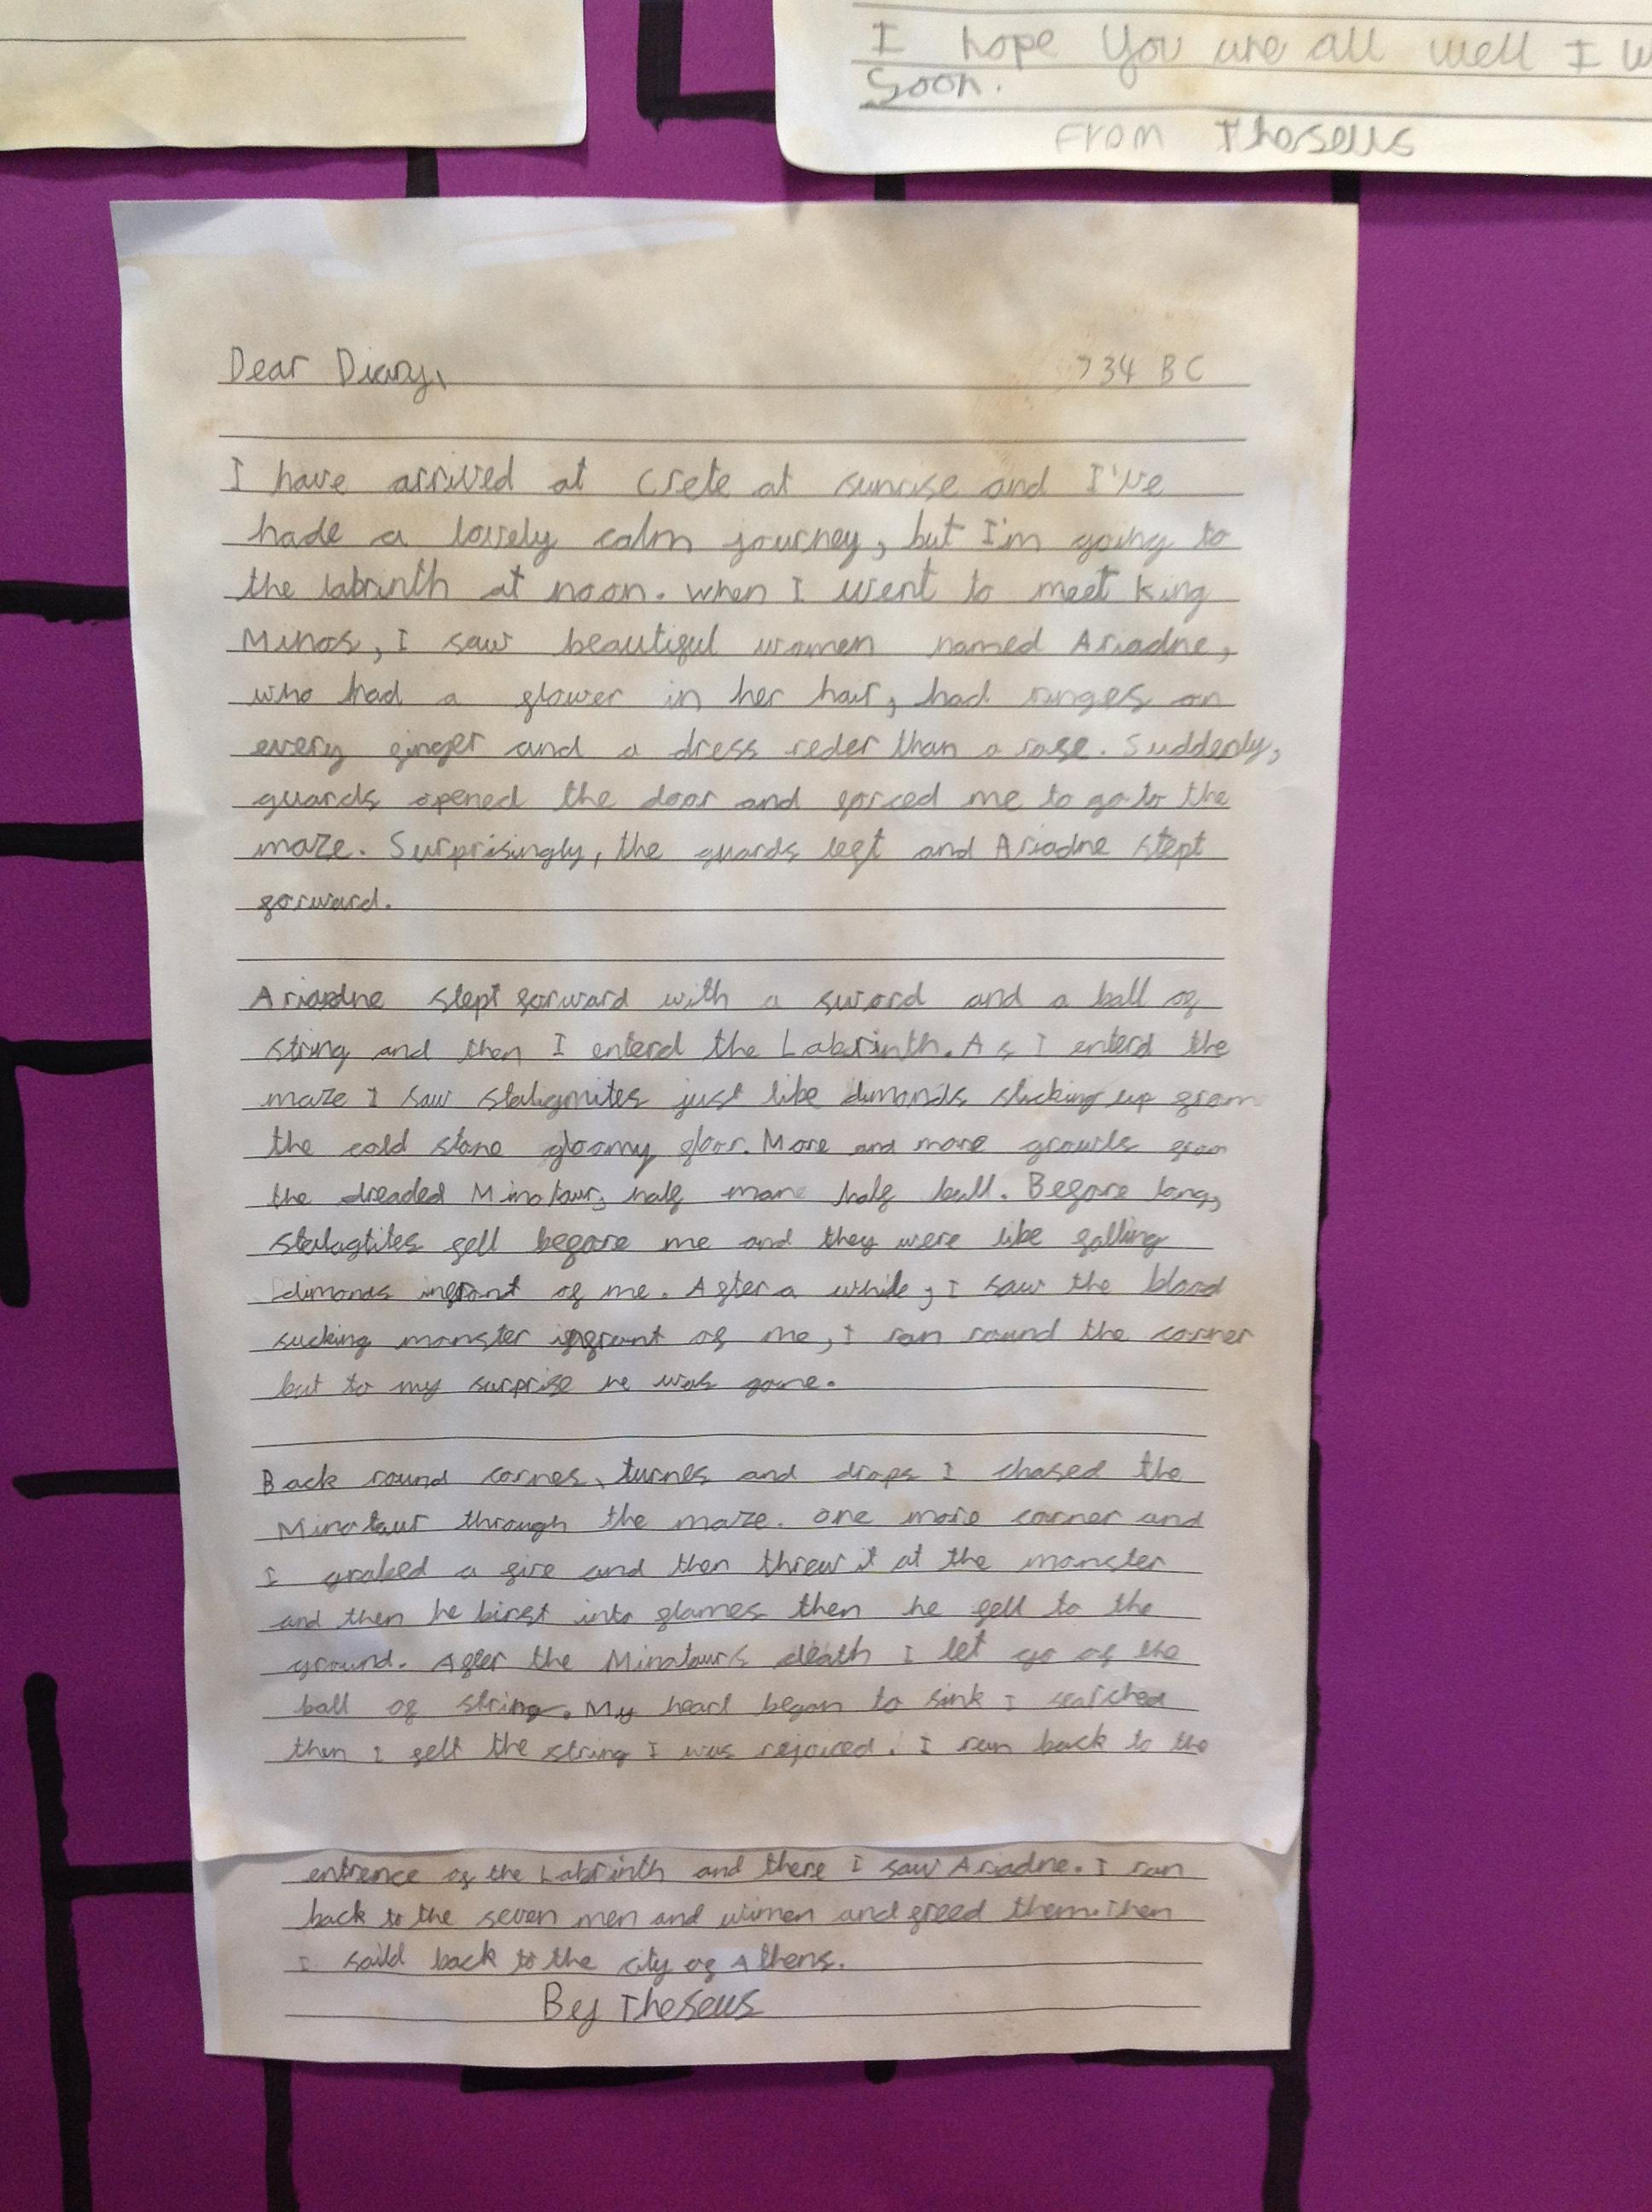 I hope you are all well I w
soon.
From Theseus
Dear Diary, 734 BC
I have arrived at Crete at sunrise and I've
hade a lovely calm journey, but I'm going to
the labrinth at noon. When I went to meet king
Minos, I saw beautiful women named Ariadne,
who had a flower in her hair, had ringes on
every finger and a dress reder than a rose. Suddenly,
guards opened the door and forced me to go to the
maze. Surprisingly, the guards left and Ariadne stept
forward.
Ariadne stept forward with a sword and a ball of
string and then I enterd the Labrinth. As I enterd the
maze I saw stalignites just like dimonds sticking up from
the cold stone gloomy floor. More and more growls from
the dreaded Minotaur, half man half bull. Before long,
stalagtites fell before me and they were like falling
dimonds infront of me. After a while, I saw the blood
sucking monster infront of me, I ran round the corner
but to my surprise he was gone.
Back round cornes, turnes and drops I chased the
Minotaur through the maze. One more corner and
I grabed a fire and then threw it at the monster
and then he birst into flames then he fell to the
ground. After the Minataurs death I let go of the
ball of string. My heart began to sink I searched
then I felt the string I was rejoiced. I run back to the
entrence of the Labrinth and there I saw Ariadne. I ran
back to the seven men and wimen and freed them. Then
I saild back to the city of Athens.
By Theseus